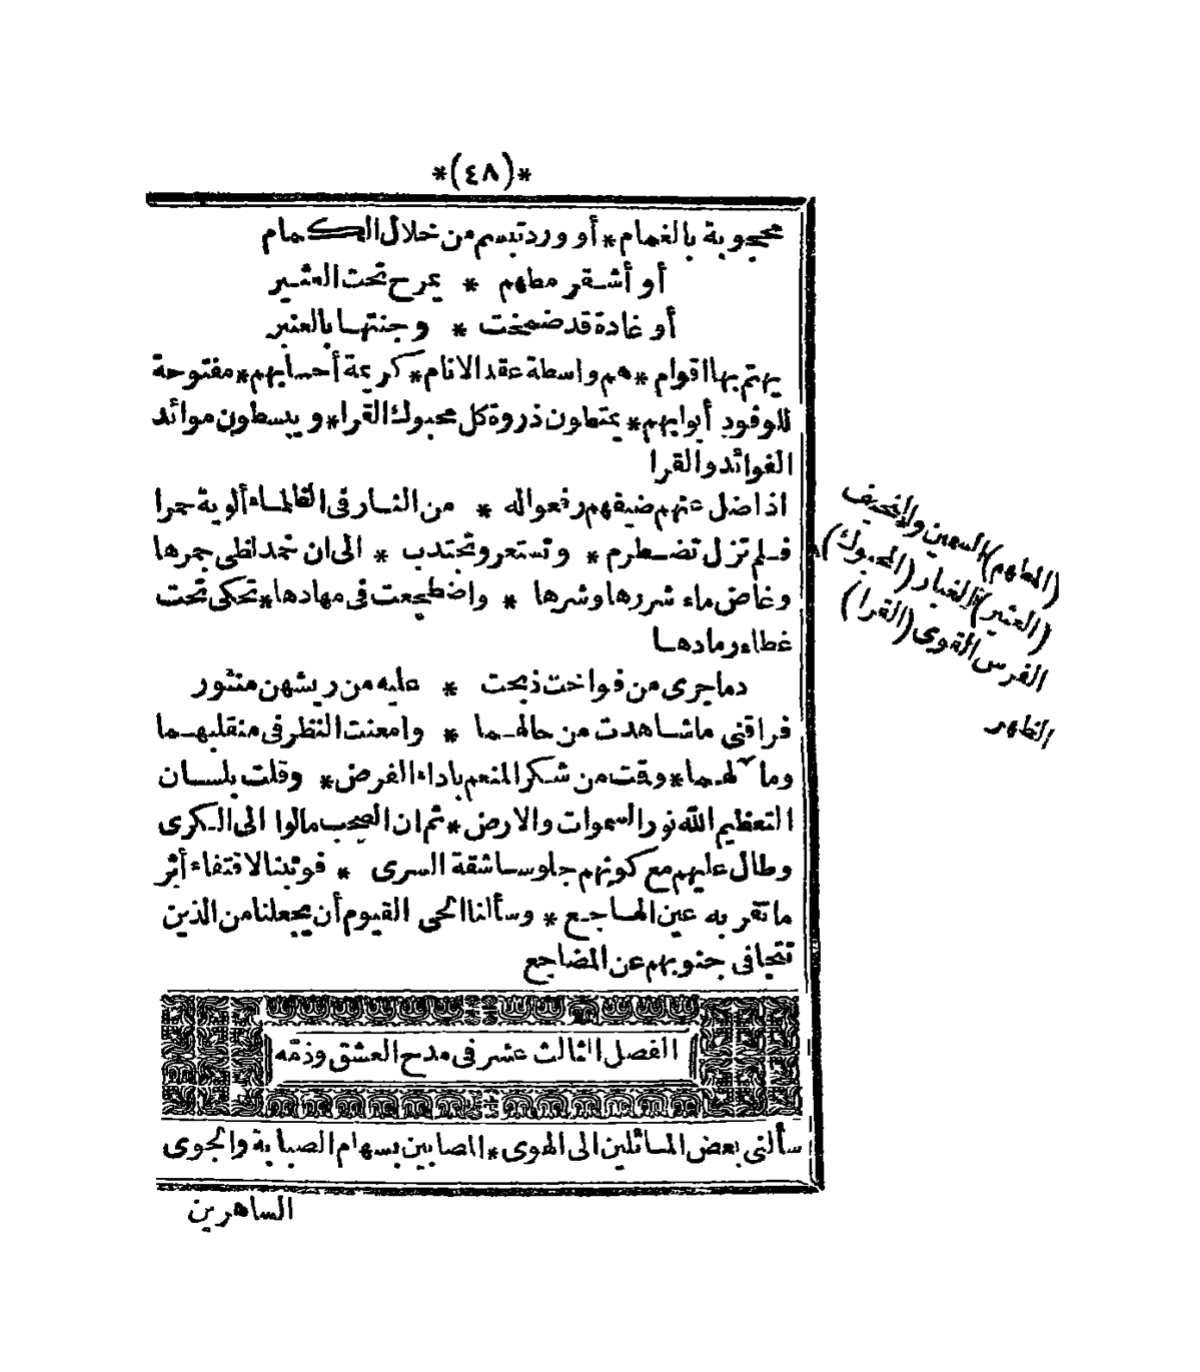 *(٤٨)*
محجوبة بالغمام * أو ورد تبسم من خلال الكمام
أو أشقر مطهم * يمرح تحت العثير
أو غادة قد ضمخت * وجنتها بالعنبر
يهتم بها اقوام * هم واسطة عقد الانام * كريمة أحسابهم * مفتوحة
للوفود أبوابهم * يمتطون ذروة كل محبوك القرا * ويبسطون موائد
الفوائد والقرا
اذا ضل عنهم ضيفهم رفعوا له * من النار فى الظلماء ألوية حمرا
فلم تزل تضطرم * وتستعر وتحتدب * الى ان خمد لظى جمرها
وغاض ماء شررها وشرها * واضطجعت فى مهادها * تحكى تحت
غطاء رمادها
دما جرى من فواخت ذبحت * عليه من ريشهن منثور
فراقنى ما شاهدت من حالهما * وامعنت النظر فى منقلبهما
وما لهما * وقمت من شكر المنعم باداء الفرض * وقلت بلسان
التعظيم الله نور السموات والارض * ثم ان الصحب مالوا الى الكرى
وطال عليهم مع كونهم جلوسا شقة السرى * فوثبنا لاقتفاء أثر
ما تقر به عين الهاجع * وسألنا الحى القيوم أن يجعلنا من الذين
تتجافى جنوبهم عن المضاجع
الفصل الثالث عشر فى مدح العشق وذمّه
سألنى بعض المائلين الى الهوى * المصابين بسهام الصبابة والجوى
الساهرين
(المطهم) السمين والنحيف
(العثير) الغبار (المحبوك)
الفرس القوى (القرا)
الظهر